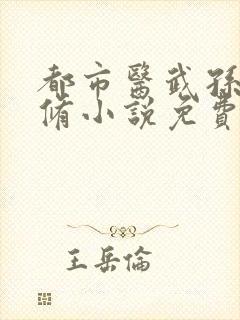 都市醫武孫
脩小說免費
王岳倫